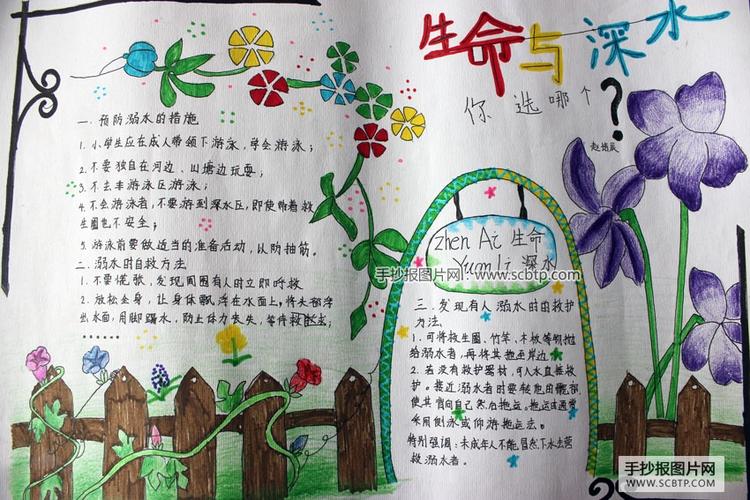 生命与深水
你选哪个?
赵培宬
一. 预防溺水的措施
1. 小学生应在成人带领下游泳，学会游泳；
2. 不要独自在河边、山塘边玩耍；
3. 不去非游泳区游泳；
4. 不会游泳者，不要游到深水区，即使带着救
生圈也不安全；
5. 游泳前要做适当的准备活动，以防抽筋。
二. 溺水时自救方法
1. 不要慌张，发现周围有人时立即呼救
2. 放松全身，让身体飘浮在水面上，将头部浮
出水面，用脚踢水，防止体力丧失，等待救援；
......
zhen Ai 生命
Yuan Li 深水
手抄报图片网 · www.scbtp.com
三. 发现有人溺水时的救护
方法
1. 可将救生圈、竹竿、木板等物抛
给溺水者，再将其拖至岸边
2. 若没有救护器材，可入水直接救
护。接近溺水者时要转动他的髋部，
使其背向自己然后拖运。拖运时通常
采用侧泳或仰游拖运法。
特别强调：未成年人不能冒然下水去营
救溺水者。
手抄报图片网
WWW.SCBTP.COM